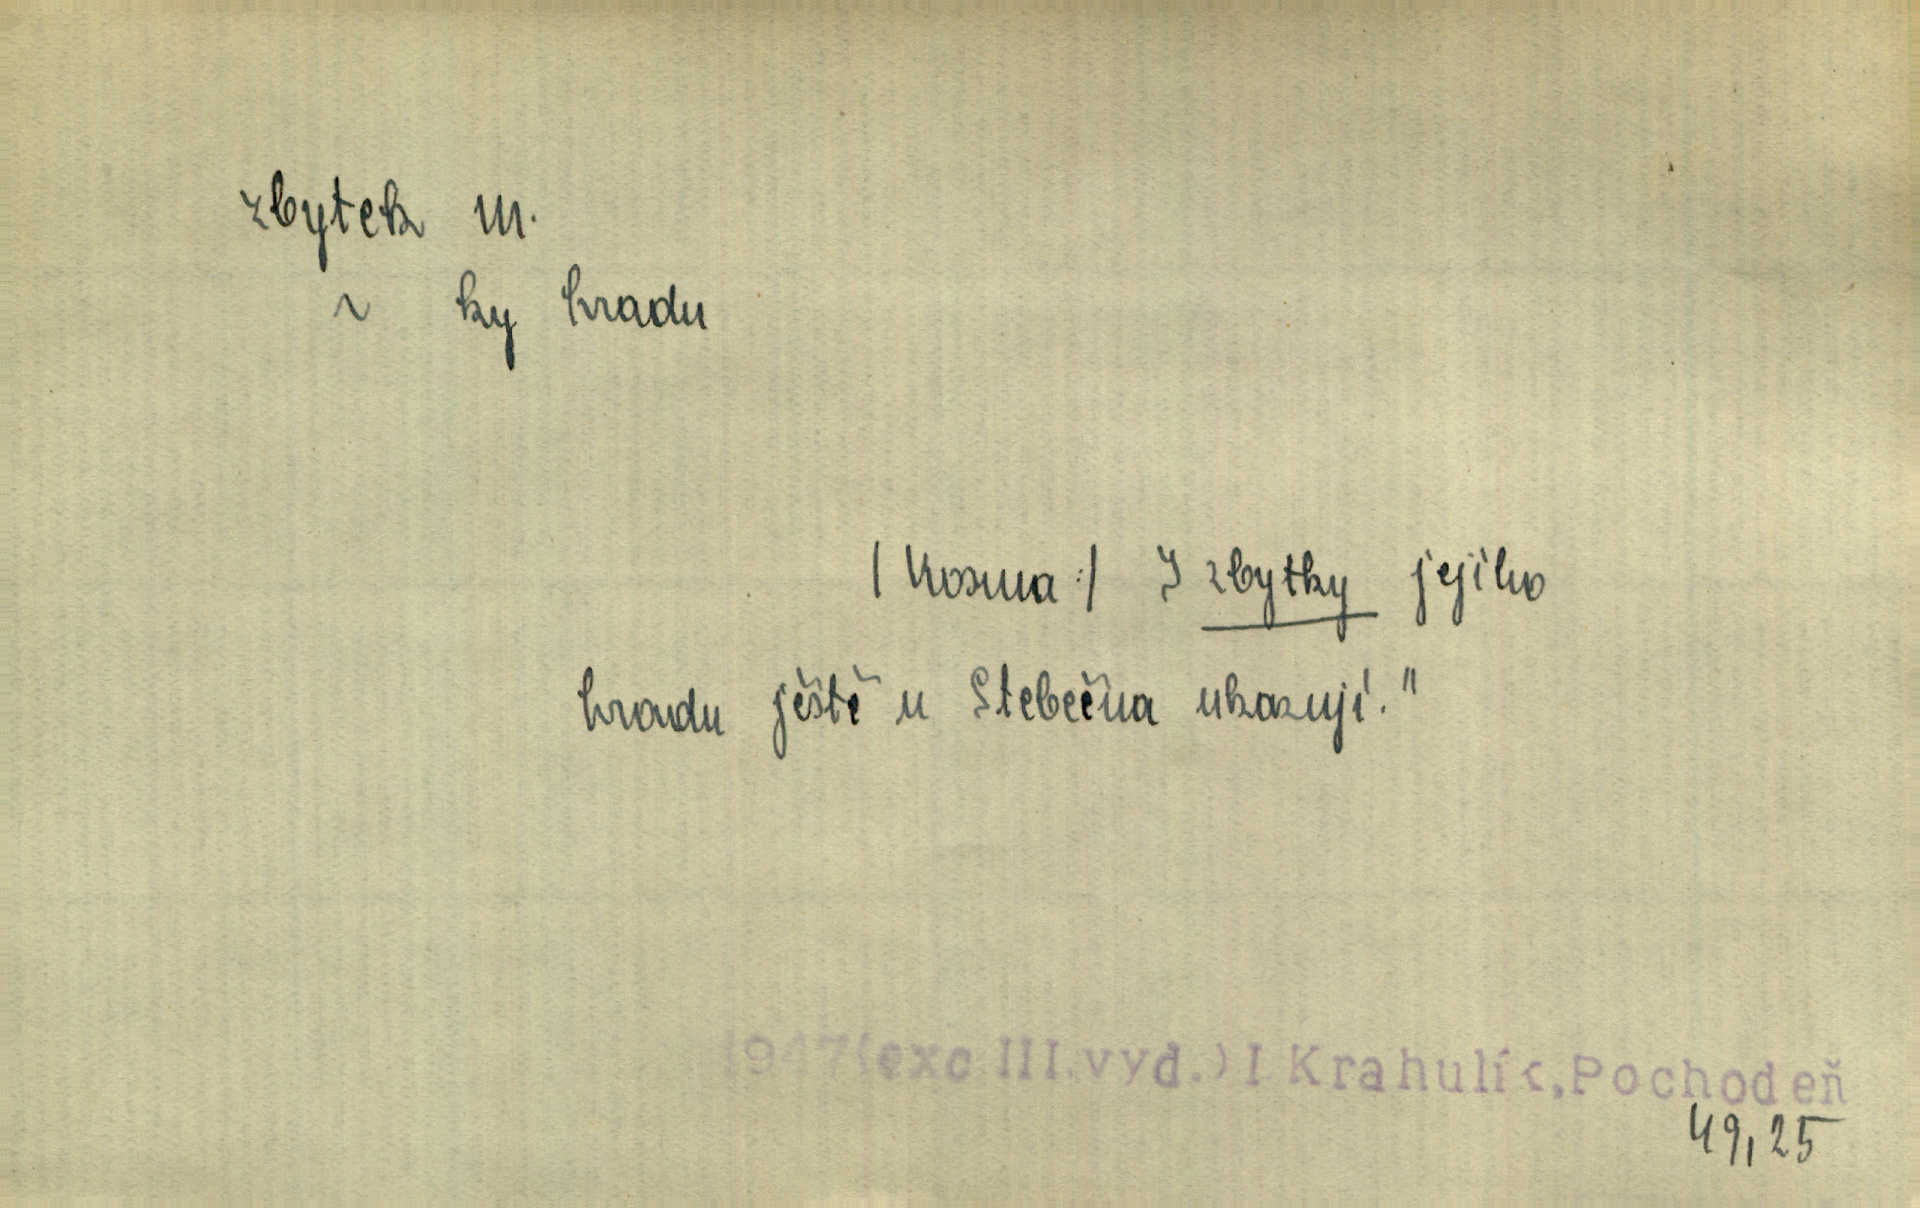 zbytek m.
~ ky hradu
/Kosma:/ I zbytky jejího
hradu ještě u Stebečna ukazují."
1947(exc III.vyd.) I Krahulík,Pochodeň
49,25